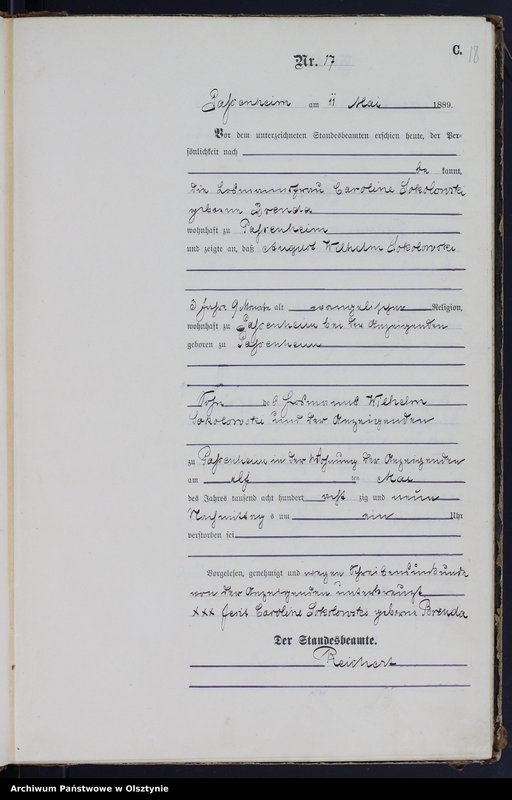 C. 18
Nr. 17
Passenheim am 11 Mai 1889.
Vor dem unterzeichneten Standesbeamten erschien heute, der Per-
sönlichkeit nach
be kannt,
die Losmannsfrau Caroline Sokolowski
geborene Brenda
wohnhaft zu Passenheim
und zeigte an, daß August Wilhelm Sokolowski
3 Jahre 9 Monate alt evangelischer Religion,
wohnhaft zu Passenheim bei der Anzeigenden
geboren zu Passenheim
Sohn des Losmanns Wilhelm
Sokolowski und der Anzeigenden
zu Passenheim in der Wohnung der Anzeigenden
am elf ten Mai
des Jahres tausend acht hundert acht zig und neun
Nachmittags um ein Uhr
verstorben sei
Vorgelesen, genehmigt und wegen Schreibensunkunde
von der Anzeigenden unterkreuzt
xxx Caroline Sokolowski geborne Brenda
Der Standesbeamte.
Reichert
Archiwum Państwowe w Olsztynie